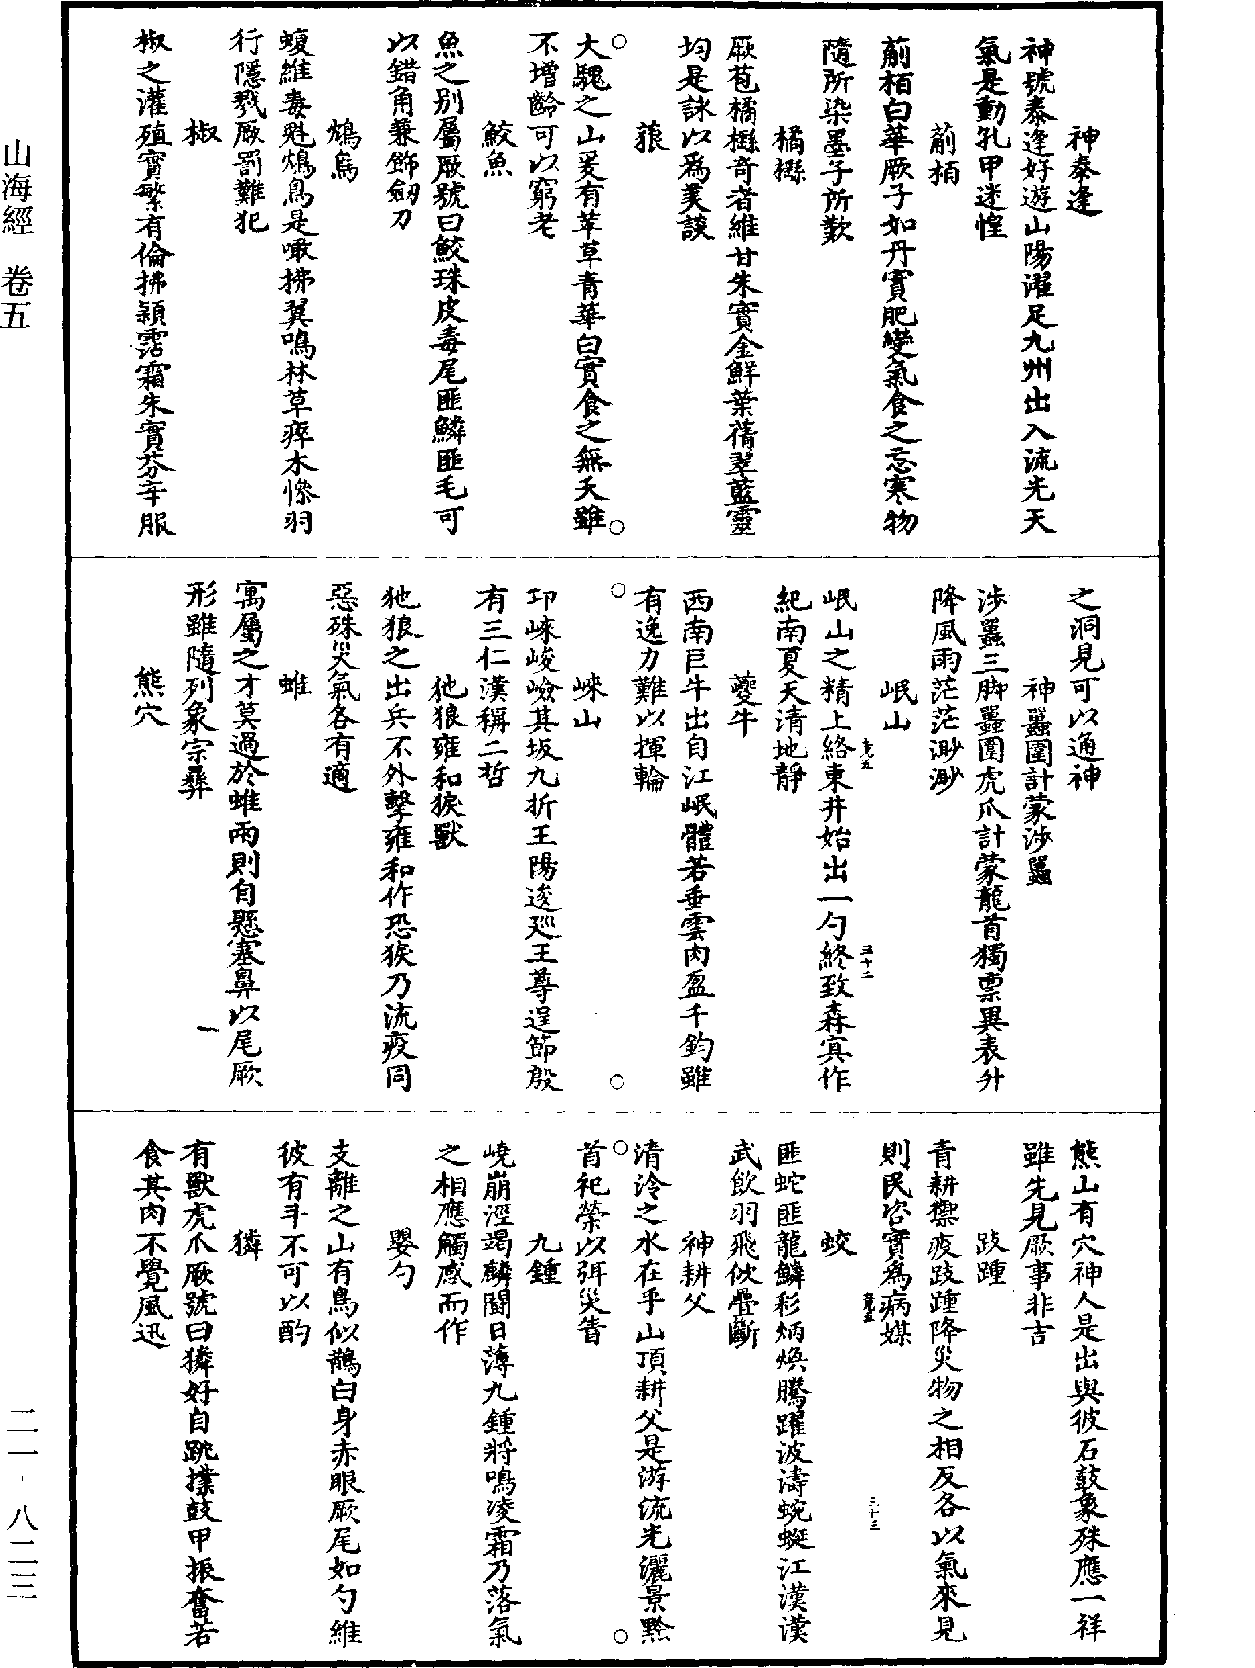 神泰逢
神號泰逢好遊山陽濯足九州出入流光天
氣是動孔甲迷惶
葪栢
葪栢白華厥子如丹實肥變氣食之忘寒物
隨所染墨子所歎
橘櫾
厥苞橘櫾奇者維甘朱實金鮮葉蒨翠藍靈
均是詠以為美談
蒗
大騩之山爰有苹草青華白實食之無夭雖
不增齡可以窮老
鮫魚
魚之别屬厥號曰鮫珠皮毒尾匪鱗匪毛可
以錯角兼飾劒刀
鴆鳥
蝮維毒魁鴆鳥是噉拂翼鳴林草瘁木慘羽
行隱戮厥罰難犯
椒
椒之灌殖實繁有倫拂穎霑霜朱實芬辛服
之洞見可以通神
神䰜圍計蒙涉䰜
涉䰜三脚䰜圍虎爪計蒙龍首獨禀異表升
降風雨茫茫渺渺
岷山
岷山之精上絡東井始出一勺終致森冥作
紀南夏天清地靜
夔牛
西南巨牛出自江岷體若垂雲肉盈千鈞雖
有逸力難以揮輪
崍山
卭崍峻嶮其坂九折王陽逡巡王尊逞節殷
有三仁漢稱二哲
㹢狼雍和㺉獸
㹢狼之出兵不外擊雍和作恐㺉乃流疫同
惡殊災氣各有適
蜼
寓屬之才莫過於蜼雨則自懸塞鼻以尾厥
形雖隨列象宗彞
熊穴
熊山有穴神人是出與彼石鼓象殊應一祥
雖先見厥事非吉
跂踵
青耕禦疫跂踵降災物之相反各以氣來見
則民咨實為病媒
蛟
匪蛇匪龍鱗彩炳煥騰躍波濤蜿蜒江漢漢
武飲羽飛佽疊斷
神耕父
清泠之水在乎山頂耕父是游流光灑景黔
首祀禜以弭災眚
九鍾
嶢崩涇竭麟鬪日薄九鍾將鳴凌霜乃落氣
之相應觸感而作
嬰勺
支離之山有鳥似鵲白身赤眼厥尾如勺維
彼有斗不可以酌
獜
有獸虎爪厥號曰獜好自跳撲鼓甲振奮若
食其肉不覺風迅
三十二
三十三
山海經 卷五
二一·八二三